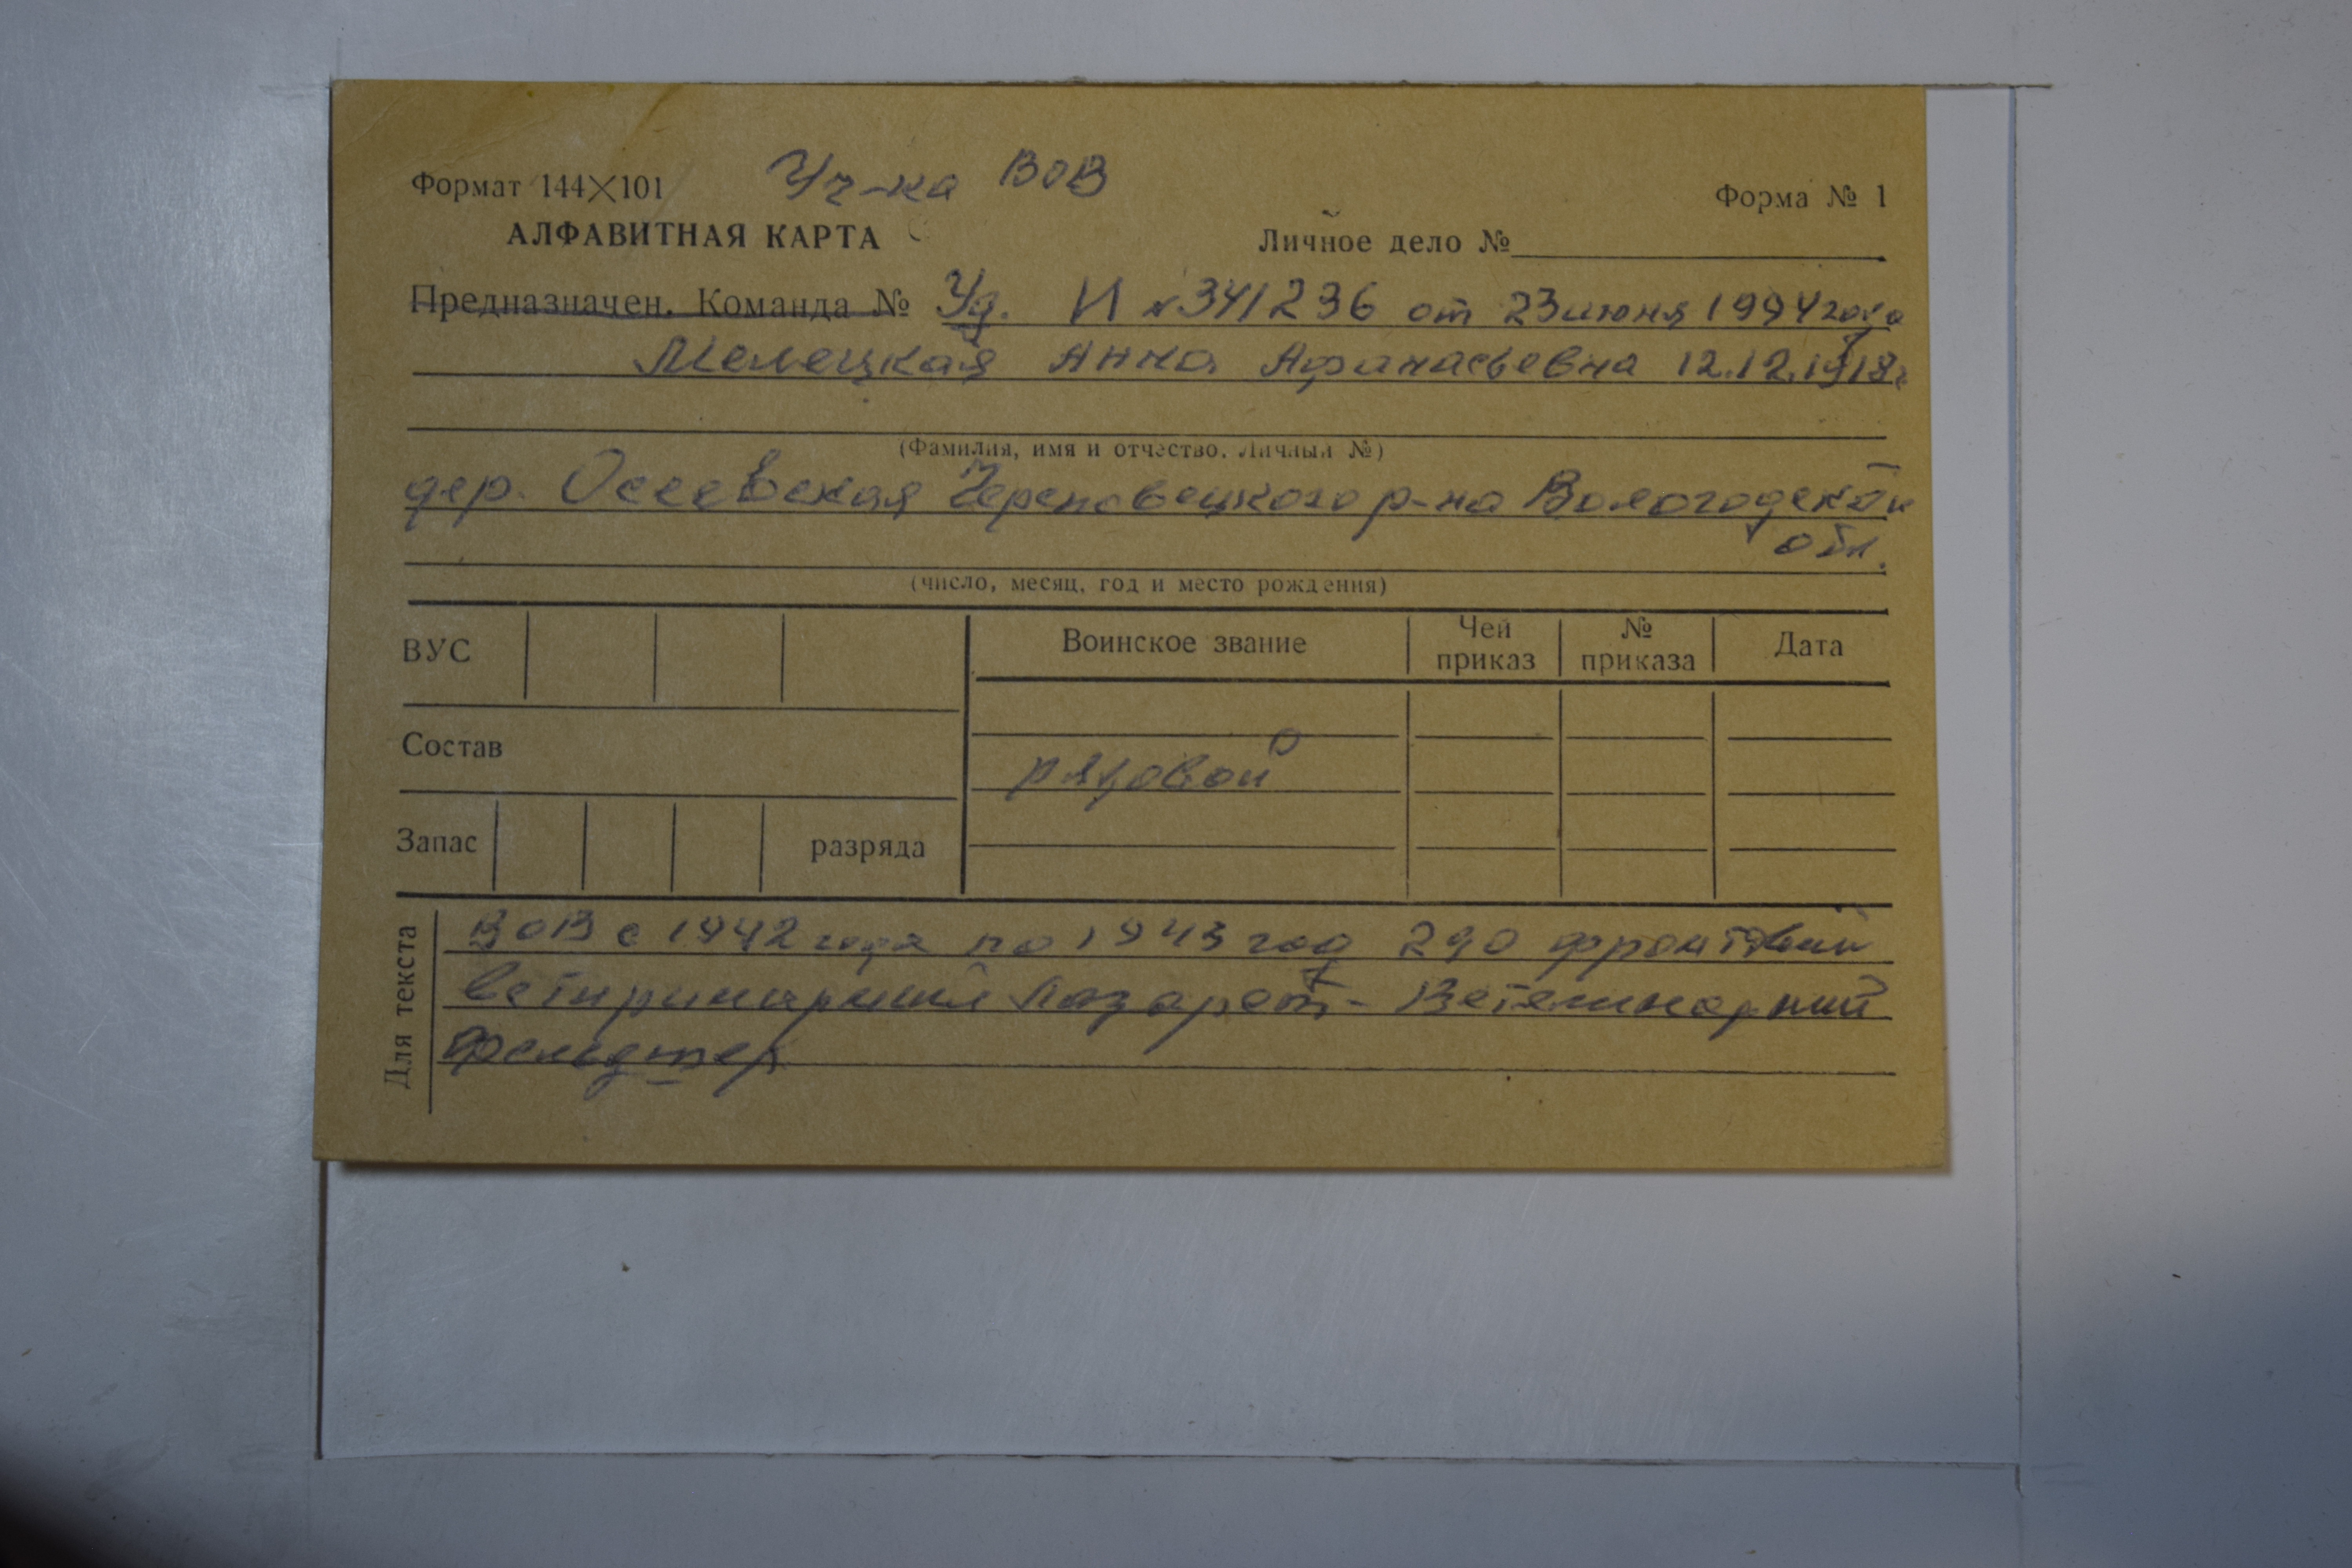 Формат 144×101 Уч-ка ВОВ Форма № 1
АЛФАВИТНАЯ КАРТА Личное дело №
Предназначен. Команда № Уд. И №341236 от 23 июня 1994 года
Мелецкая Анна Афанасьевна 12.12.1918г
(Фамилия, имя и отчество. Личный №)
дер. Череповецкого р-на Вологодской
обл.
(число, месяц, год и место рождения)
ВУС Воинское звание Чей приказ № приказа Дата
Состав
рядовой
Запас разряда
Для текста
ВОВ с 1942 года по 1943 год 290 фронтовий
лазарет - 
фельдшер